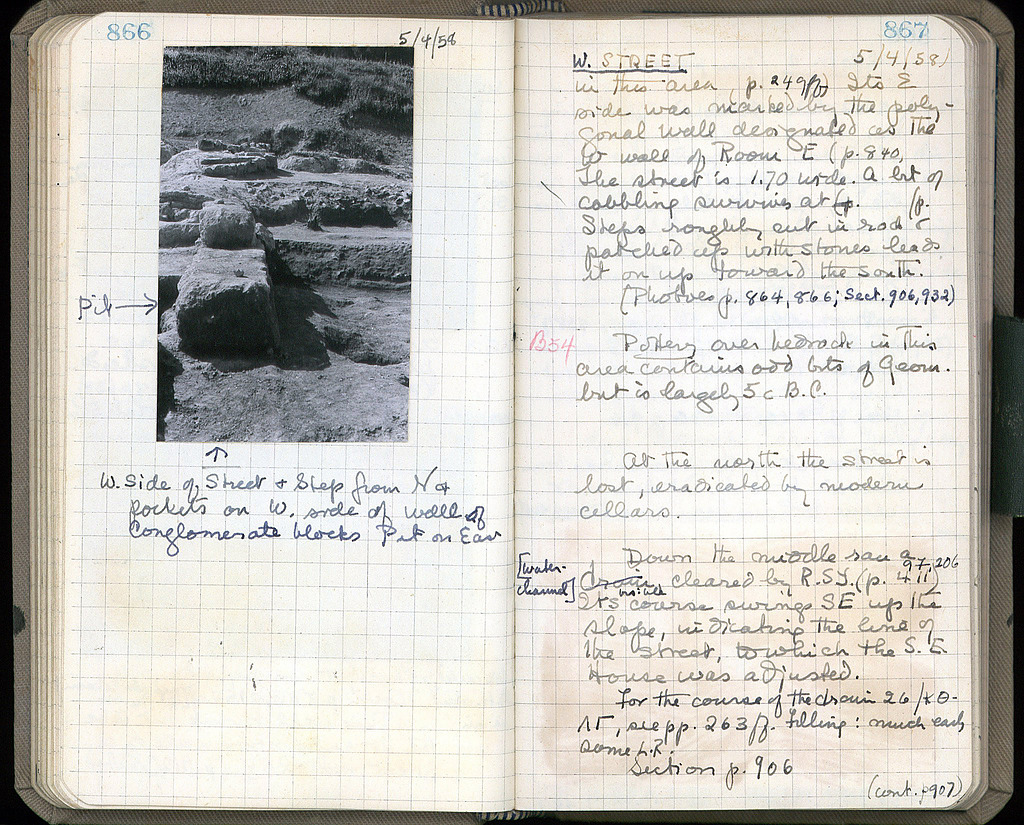 866
5/4/58
Pit →
↑
W. Side of Street + Step from N +
pockets on W. side of wall of
Conglomerate blocks Pit on East
867
W. STREET 5/4/58)
in this area (p. 249ff) Its E
side was marked by the poly-
gonal wall designated as the
W wall of Room E (p. 840,
The street is 1.70 wide. A bit of
cobbling survives at (p.
Steps roughly cut in rock &
patched up with stones leads
it on up toward the south.
(Photoes p. 864, 866; Sect. 906, 932)
B54 Pottery over bedrock in this
area contains odd bits of Geom.
but is largely 5 c B.C.
At the north the street is
lost, eradicated by modern
cellars.
Down the middle ran a
[water- channel] drain, cleared by R.S.Y. (p. 411) 97, 206
Its course swings SE up the
slope, indicating the line of
the street, to which the S.E.
House was adjusted.
For the course of the drain 26/ΚΘ-
ΛΓ, see pp. 263ff. Filling: much early
some L.R.
Section p. 906
(cont. p907)